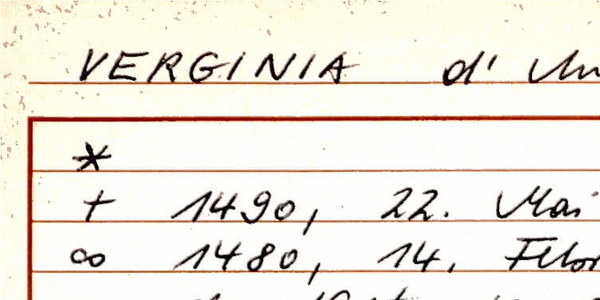 VERGINIA d'
*
+ 1490, 22. Mai
∞ 1480, 14.